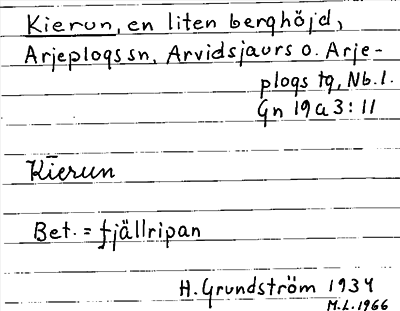 Kierun, en liten berghöjd,
Arjeplogs sn, Arvidsjaurs o. Arje-
plogs tg, Nb. l.
Gn 19 a 3 : 11
Kīerun
Bet. = fjällripan
H. Grundström 1934
M.L. 1966